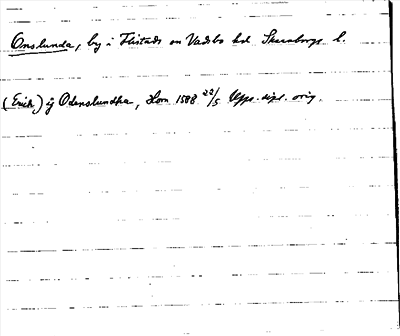 Onslunda, by i Flistads sn Vadsbo hd Skaraborgs l.
(Erich) ij Odenslundha, Horn 1588 22/5 Upps. dipl. orig.